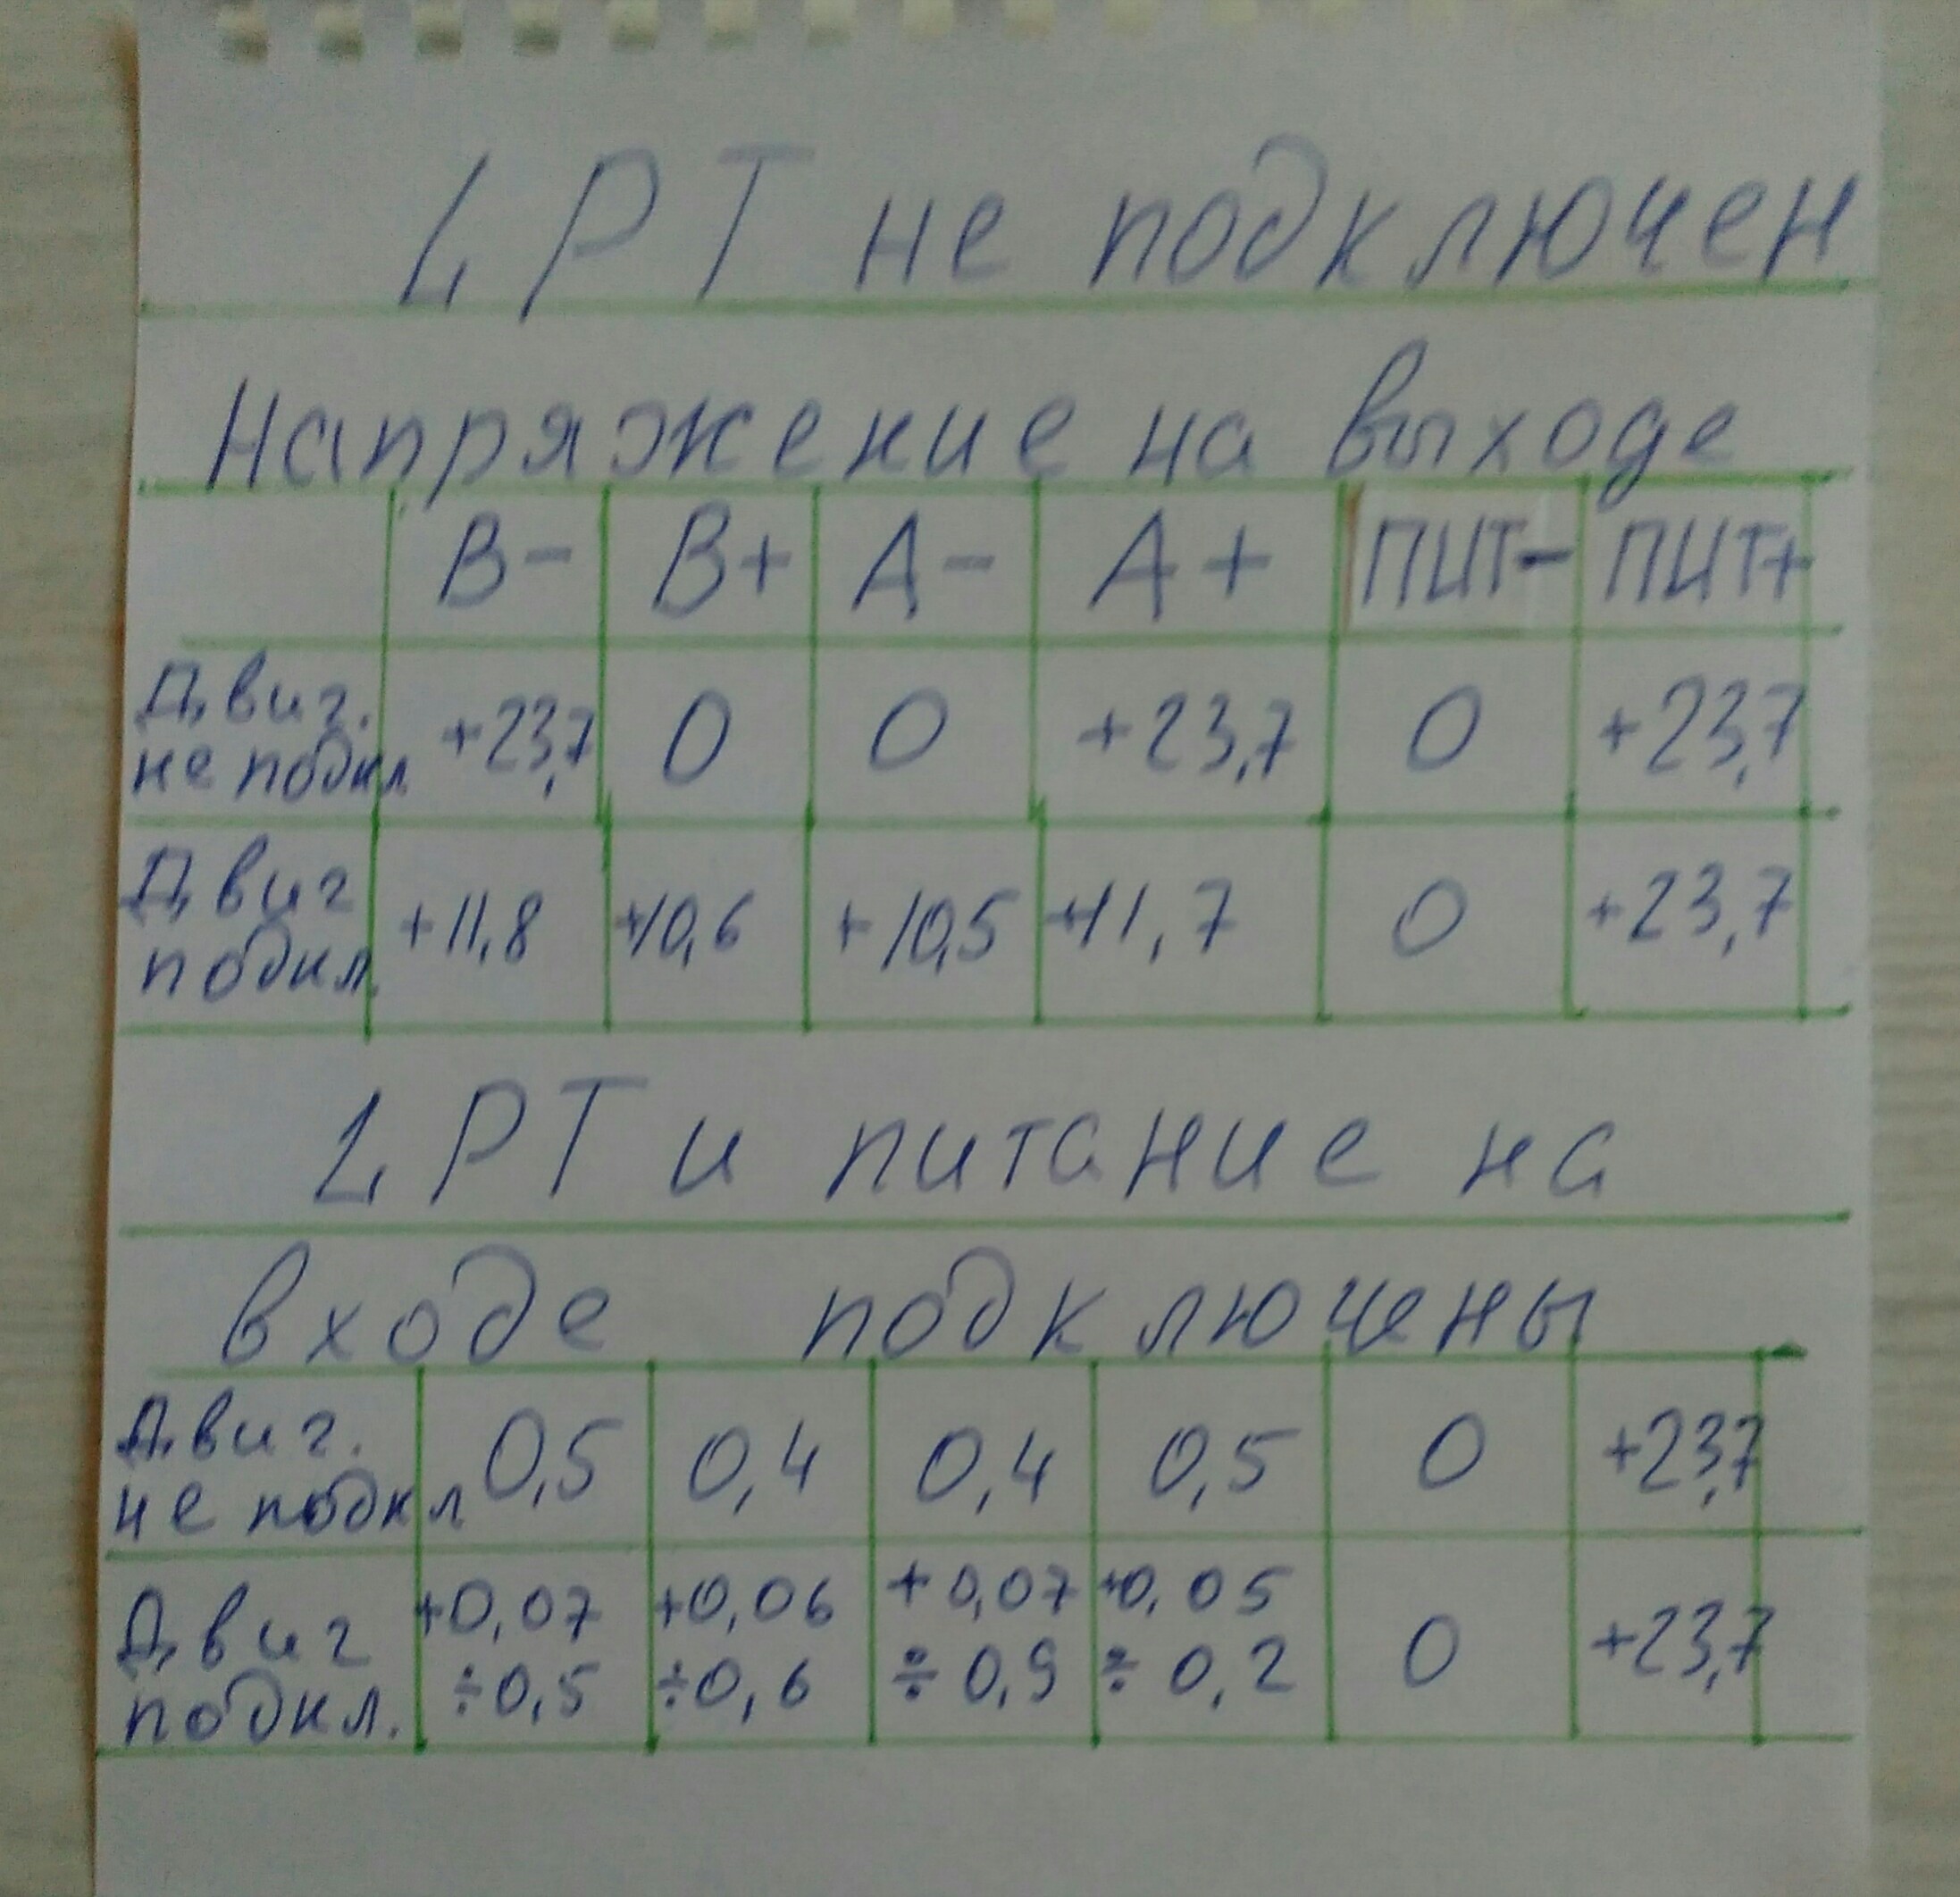 LPT не подключен
Напряжение на выходе
В- В+ А- А+ ПИТ- ПИТ+
Двиг. не подкл +23,7 0 0 +23,7 0 +23,7
Двиг подкл. +11,8 +10,6 +10,5 +11,7 0 +23,7
LPT и питание на
входе подключены
Двиг. не подкл 0,5 0,4 0,4 0,5 0 +23,7
Двиг подкл. +0,07 ÷0,5 +0,06 ÷0,6 +0,07 ÷0,9 +0,05 ÷0,2 0 +23,7